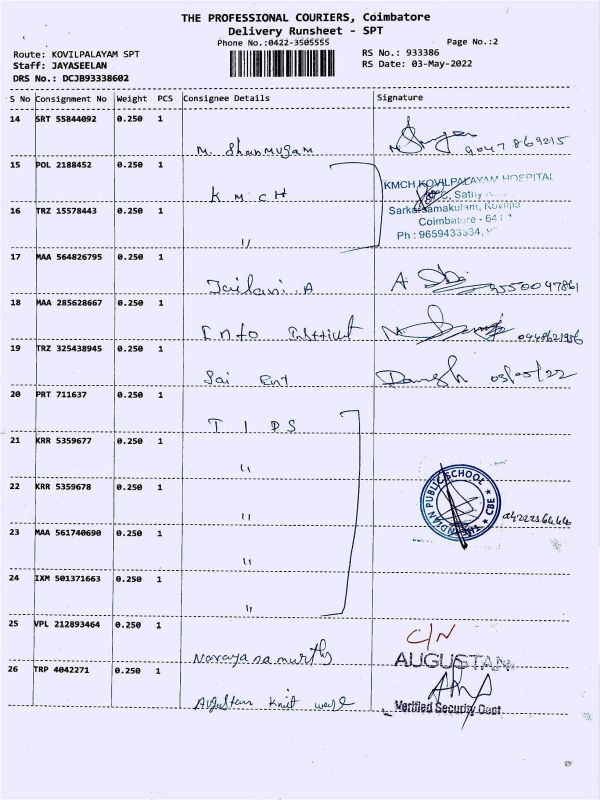 THE PROFESSIONAL COURIERS, Coimbatore
Delivery Runsheet - SPT
Phone No.:0422-3505555
Page No.:2
Route: KOVILPALAYAM SPT
RS No.: 933386
Staff: JAYASEELAN
RS Date: 03-May-2022
DRS No.: DCJB93338602
S No Consignment No Weight PCS Consignee Details Signature
14 SRT 55844092 0.250 1
M. Shanmugam 9047869215
15 POL 2188452 0.250 1
K M C H
KMCH KOVILPALAYAM HOSPITAL
16 TRZ 15578443 0.250 1
Sarkarsamakulam, Kovilpa
Coimbatore - 641
Ph : 9659433334,
"
17 MAA 564826795 0.250 1
Jailani. A
18 MAA 285628667 0.250 1
Info
19 TRZ 325438945 0.250 1
Sai Ent 03/05/22
20 PRT 711637 0.250 1
T I P S
21 KRR 5359677 0.250 1
"
THE INDIAN PUBLIC SCHOOL ★ CBE ★
22 KRR 5359678 0.250 1
"
23 MAA 561740690 0.250 1
"
24 IXM 501371663 0.250 1
"
25 VPL 212893464 0.250 1
C/N
Narayanamurthy AUGUSTAN
26 TRP 4042271 0.250 1
Augustan Knit wear Verified Security Dept